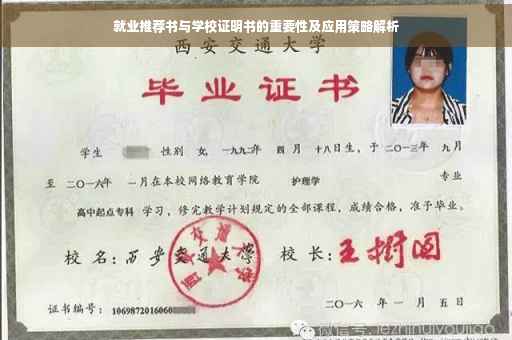 就业推荐书与学校证明书的重要性及应用策略解析
西安交通大学
毕业证书
学生 性别 女,一九九二年 四 月 十八日生,于 二〇一三年 九月
至 二〇一六年 一月在本校网络教育学院 护理学 专业
高中起点专科 学习,修完教学计划规定的全部课程,成绩合格,准予毕业。
校 名:西安交通大学 校 长:王树国
证书编号:1069872016060
二〇一六 年 一 月 五 日
微信号:jezhihuiyoujiao